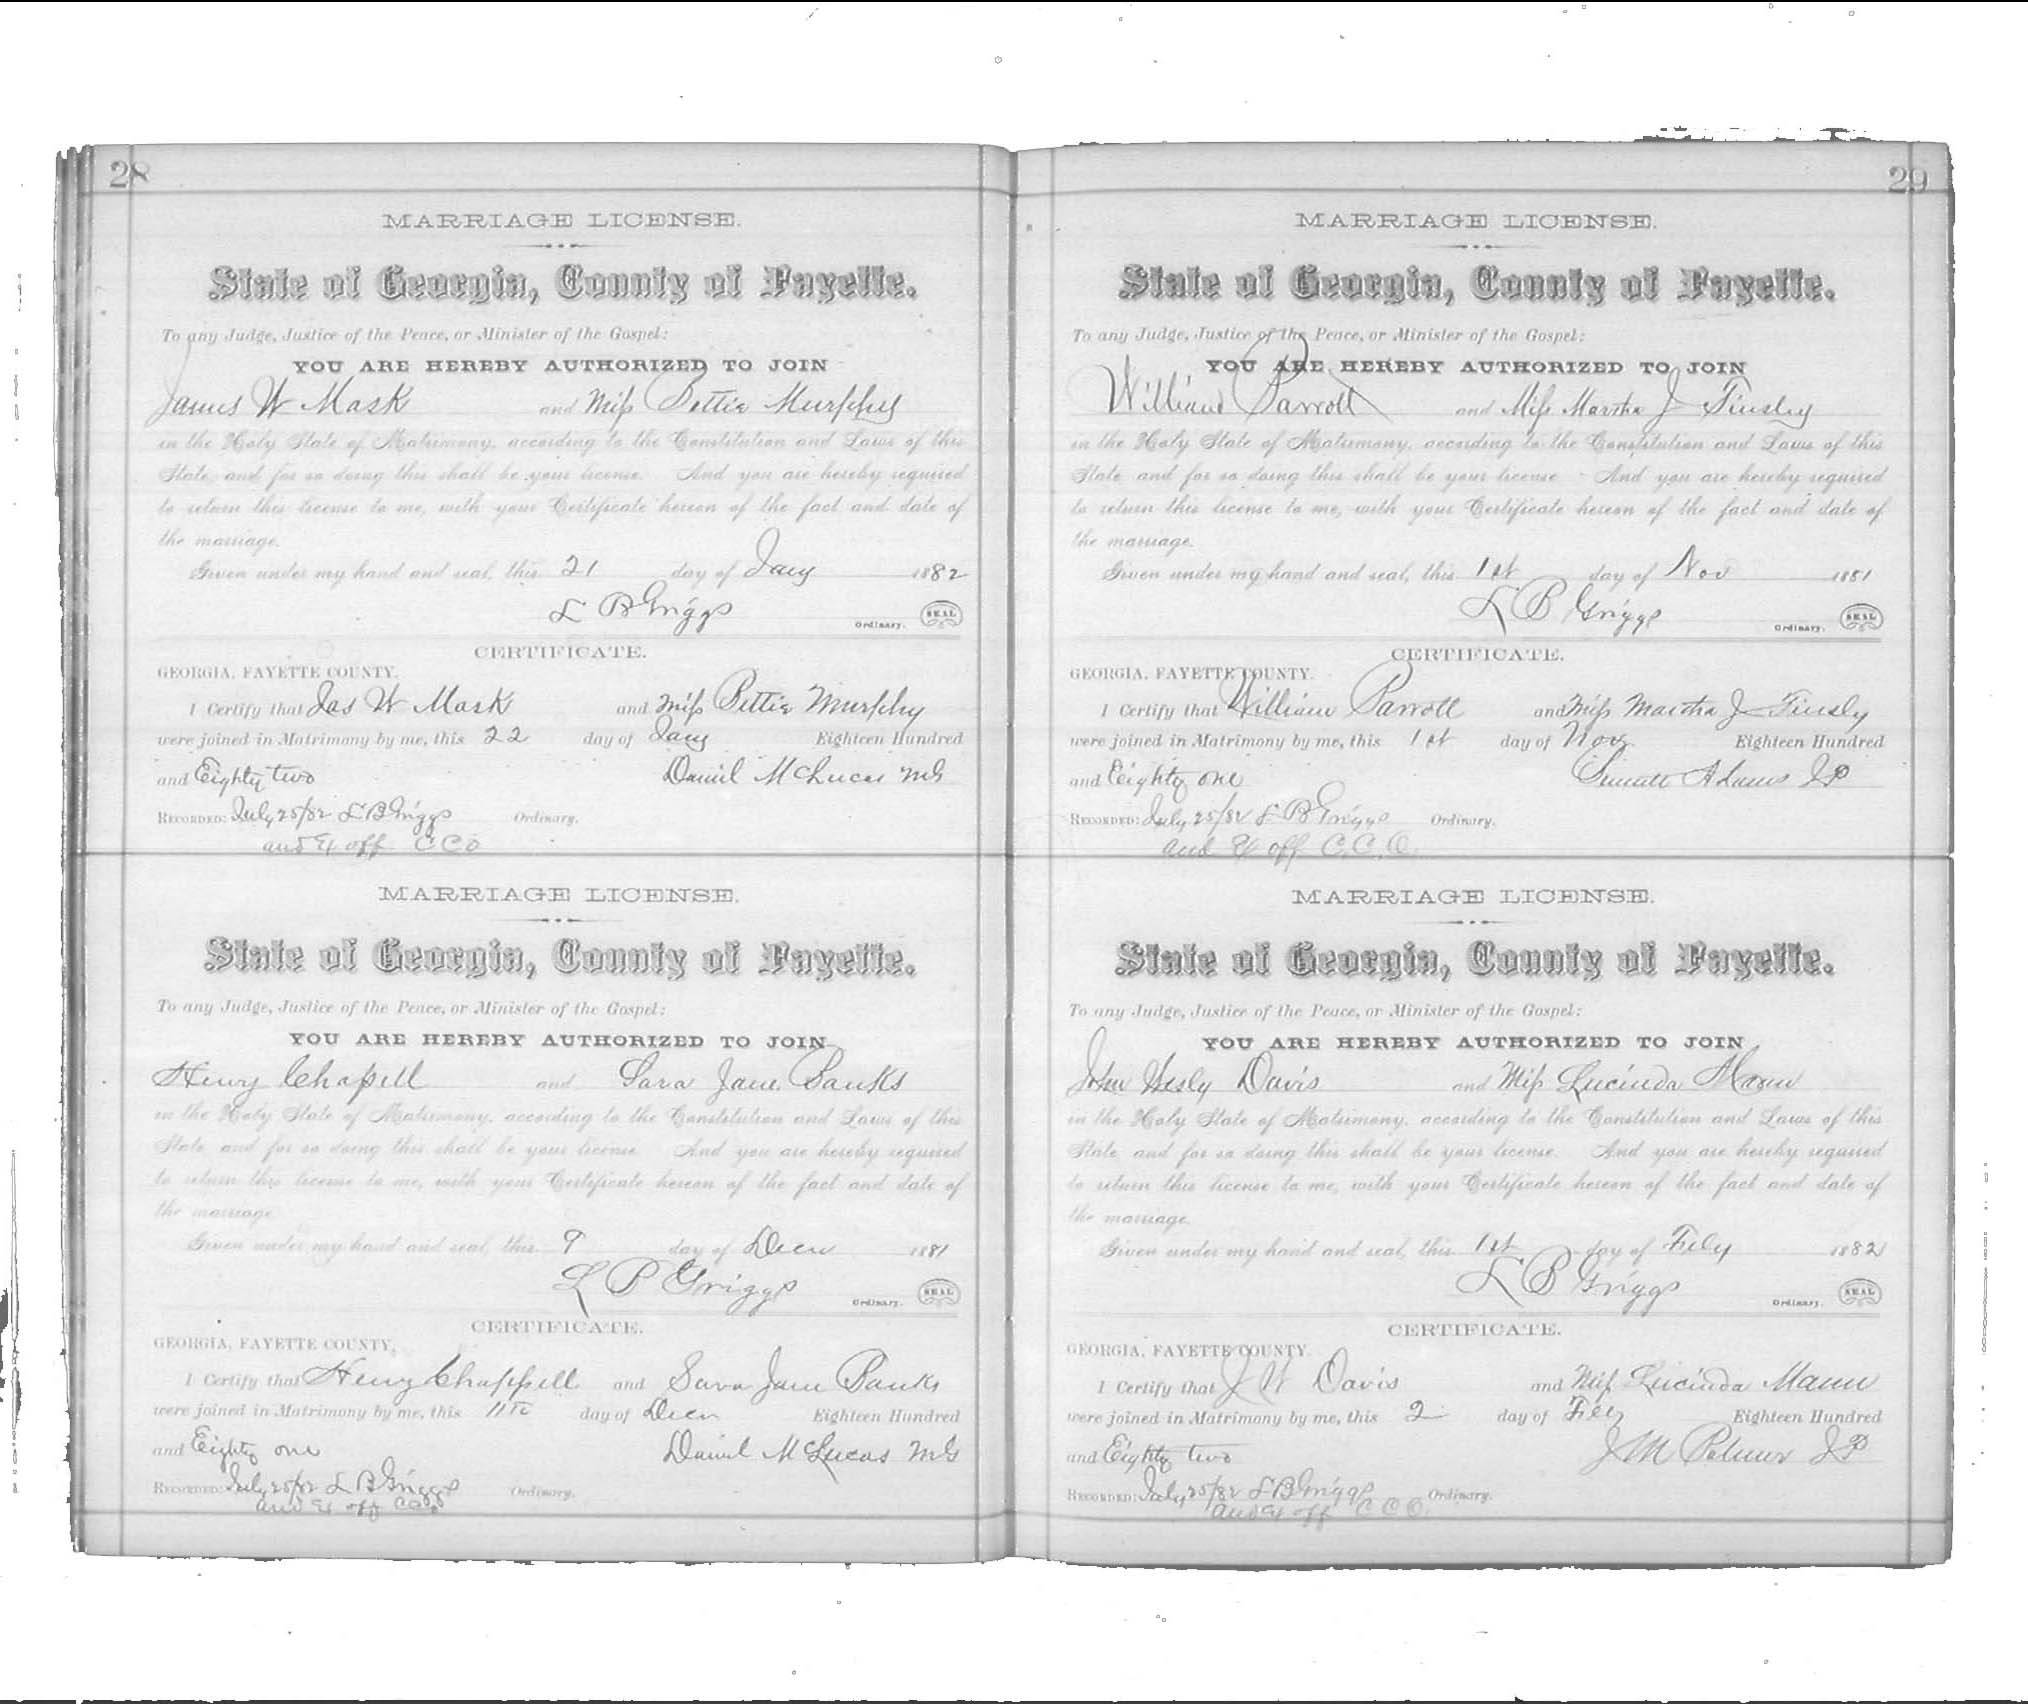 28
MARRIAGE LICENSE.
State of Georgia, County of Fayette.
To any Judge, Justice of the Peace, or Minister of the Gospel:
YOU ARE HEREBY AUTHORIZED TO JOIN
James W Mask and Miss Bettie Murphy
in the Holy State of Matrimony, according to the Constitution and Laws of this
State, and for so doing this shall be your license. And you are hereby required
to return this license to me, with your Certificate hereon of the fact and date of
the marriage.
Given under my hand and seal, this 21 day of Jany 1882
L B Griggs
Ordinary. SEAL
CERTIFICATE.
GEORGIA, FAYETTE COUNTY.
I Certify that Jas W Mask and Miss Bettie Murphy
were joined in Matrimony by me, this 22 day of Jany Eighteen Hundred
and Eighty two Daniel McLucas MG
RECORDED: July 25/82 L B Griggs Ordinary.
and Ex off C C O
MARRIAGE LICENSE.
State of Georgia, County of Fayette.
To any Judge, Justice of the Peace, or Minister of the Gospel:
YOU ARE HEREBY AUTHORIZED TO JOIN
Henry Chapell and Sara Jane Banks
in the Holy State of Matrimony, according to the Constitution and Laws of this
State and for so doing this shall be your license And you are hereby required
to return this license to me, with your Certificate hereon of the fact and date of
the marriage
Given under my hand and seal, this 9 day of Decr 1881
L B Griggs
Ordinary. SEAL
CERTIFICATE.
GEORGIA, FAYETTE COUNTY,
I Certify that Henry Chappell and Sara Jane Banks
were joined in Matrimony by me, this 11th day of Decr Eighteen Hundred
and Eighty one Daniel McLucas MG
RECORDED: July 25/82 L B Griggs Ordinary.
and Ex off CCO
29
MARRIAGE LICENSE.
State of Georgia, County of Fayette.
To any Judge, Justice of the Peace, or Minister of the Gospel:
YOU ARE HEREBY AUTHORIZED TO JOIN
William Parrott and Miss Martha J Tinsley
in the Holy State of Matrimony, according to the Constitution and Laws of this
State and for so doing this shall be your license And you are hereby required
to return this license to me, with your Certificate hereon of the fact and date of
the marriage.
Given under my hand and seal, this 1st day of Nov 1881
L B Griggs
Ordinary. SEAL
CERTIFICATE.
GEORGIA, FAYETTE COUNTY.
I Certify that William Parrott and Miss Martha J Tinsly
were joined in Matrimony by me, this 1st day of Nov Eighteen Hundred
and Eighty one Adams JP
RECORDED: July 25/82 L B Griggs Ordinary.
and Ex off C.C.O.
MARRIAGE LICENSE.
State of Georgia, County of Fayette.
To any Judge, Justice of the Peace, or Minister of the Gospel:
YOU ARE HEREBY AUTHORIZED TO JOIN
John Wesly Davis and Miss Lucinda Mann
in the Holy State of Matrimony, according to the Constitution and Laws of this
State and for so doing this shall be your license. And you are hereby required
to return this license to me, with your Certificate hereon of the fact and date of
the marriage.
Given under my hand and seal, this 1st day of Feby 1882
L B Griggs
Ordinary. SEAL
CERTIFICATE.
GEORGIA, FAYETTE COUNTY.
I Certify that J W Davis and Miss Lucinda Mann
were joined in Matrimony by me, this 2 day of Feby Eighteen Hundred
and Eighty two J M Palmer JP
RECORDED: July 25/82 L B Griggs Ordinary.
and Ex off C C O.